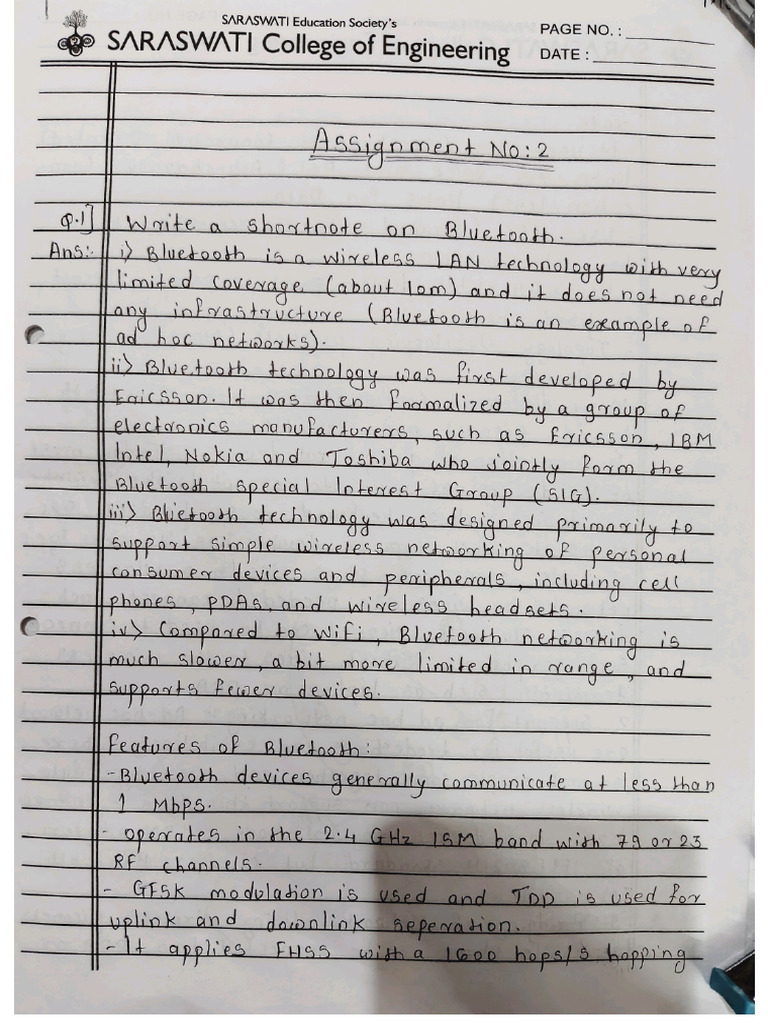 SARASWATI Education Society's
SARASWATI College of Engineering
PAGE NO. :
DATE :
Assignment No: 2
Q.1] Write a shortnote on Bluetooth.
Ans:- i) Bluetooth is a wireless LAN technology with very
limited coverage (about 10m) and it does not need
any infrastructure (Bluetooth is an example of
ad hoc networks).
ii) Bluetooth technology was first developed by
Ericsson. It was then formalized by a group of
electronics manufacturers, such as Ericsson, IBM
Intel, Nokia and Toshiba who jointly form the
Bluetooth Special Interest Group (SIG).
iii) Bluetooth technology was designed primarily to
support simple wireless networking of personal
consumer devices and peripherals, including cell
phones, PDAs, and wireless headsets.
iv) Compared to WiFi, Bluetooth networking is
much slower, a bit more limited in range, and
supports fewer devices.
Features of Bluetooth:
- Bluetooth devices generally communicate at less than
1 Mbps.
- operates in the 2.4 GHz ISM band with 79 or 23
RF channels.
- GFSK modulation is used and TDD is used for
uplink and downlink seperation.
- It applies FHSS with a 1600 hops/s hopping